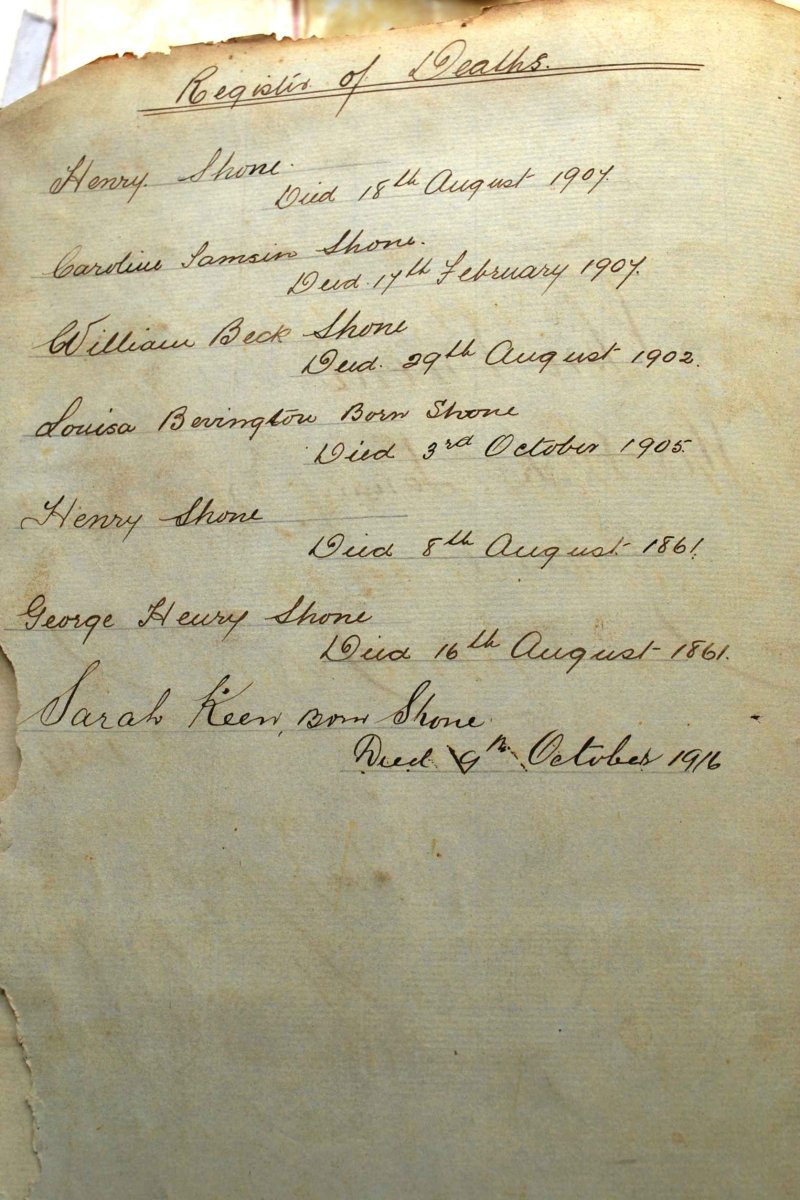 Register of Deaths.
Henry Shone.
Died 18th August 1907.
Caroline Samsin Shone.
Died 17th February 1907.
William Beck Shone
Died 29th August 1902.
Louisa Bevington Born Shone
Died 3rd October 1905.
Henry Shone
Died 8th August 1861.
George Henry Shone
Died 16th August 1861.
Sarah Keen, Born Shone
Died 9th October 1916